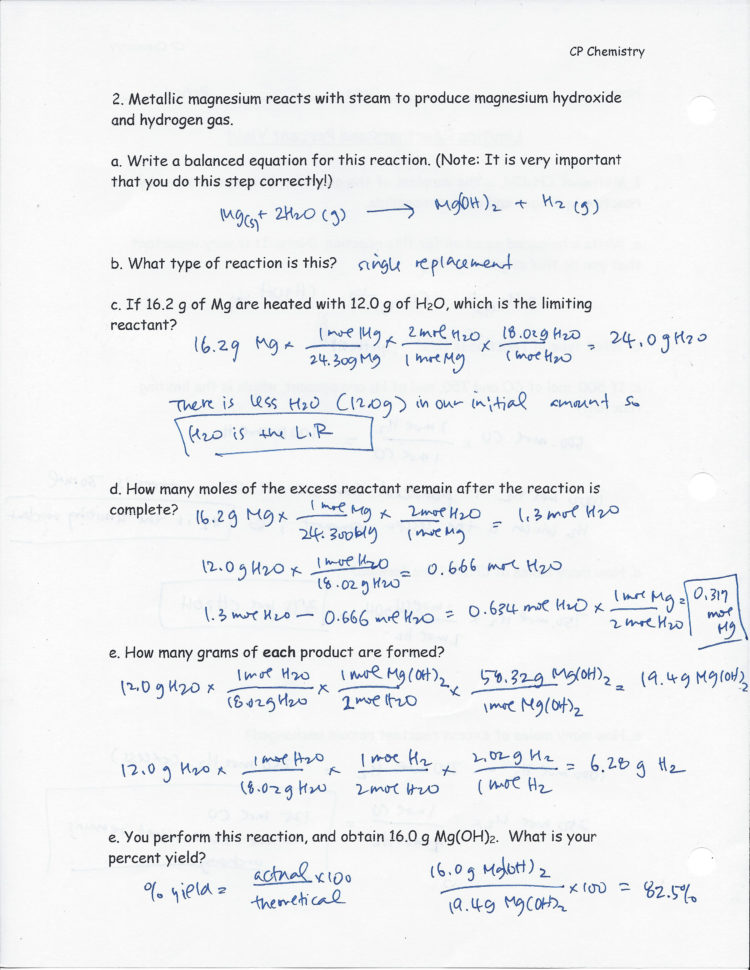 CP Chemistry
2. Metallic magnesium reacts with steam to produce magnesium hydroxide
and hydrogen gas.
a. Write a balanced equation for this reaction. (Note: It is very important
that you do this step correctly!)
Mg(s) + 2H2O (g) ⟶ Mg(OH)2 + H2 (g)
b. What type of reaction is this? single replacement
c. If 16.2 g of Mg are heated with 12.0 g of H₂O, which is the limiting
reactant?
16.2g Mg × (1 mole Mg / 24.30g Mg) × (2 mol H2O / 1 mole Mg) × (18.02g H2O / 1 mol H2O) = 24.0g H2O
There is less H2O (12.0g) in our initial amount so
H2O is the L.R
d. How many moles of the excess reactant remain after the reaction is
complete? 16.2g Mg × (1 mole Mg / 24.300g Mg) × (2 mole H2O / 1 mole Mg) = 1.3 mol H2O
12.0g H2O × (1 mol H2O / 18.02g H2O) = 0.666 mol H2O
1.3 mol H2O − 0.666 mol H2O = 0.634 mol H2O × (1 mol Mg / 2 mol H2O) = 0.317 mol Mg
e. How many grams of each product are formed?
12.0g H2O × (1 mol H2O / 18.02g H2O) × (1 mole Mg(OH)2 / 2 mole H2O) × (58.32g Mg(OH)2 / 1 mol Mg(OH)2) = 19.4g Mg(OH)2
12.0 g H2O × (1 mol H2O / 18.02g H2O) × (1 mol H2 / 2 mol H2O) × (2.02g H2 / 1 mol H2) = 6.28 g H2
e. You perform this reaction, and obtain 16.0 g Mg(OH)₂. What is your
percent yield?
% yield = (actual / theoretical) × 100 (16.0g Mg(OH)2 / 19.4g Mg(OH)2) × 100 = 82.5%